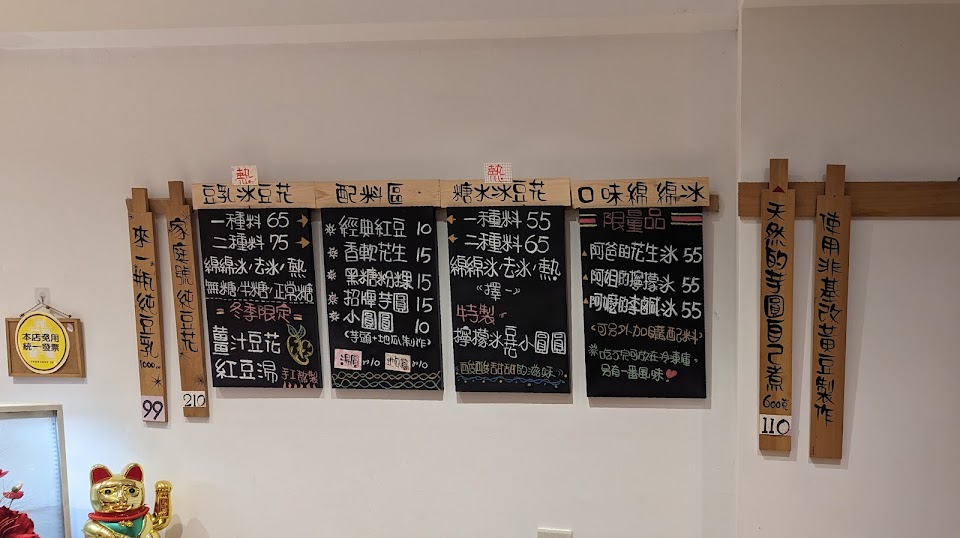 來一瓶純豆乳
99
家庭號純豆花
210
熱
豆乳冰豆花
一種料 65
二種料 75
綿綿冰/去冰/熱
無糖/半糖/正常糖
冬季限定
薑汁豆花
紅豆湯 手工熬製
配料區
經典紅豆 10
香軟花生 15
黑糖粉粿 15
招牌芋圓 15
小圓圓 10
(芋頭+地瓜製作)
湯圓 10
10
熱
糖水冰豆花
一種料 55
二種料 65
綿綿冰/去冰/熱
"擇一"
特製
檸檬冰豆花小圓圓
酸酸甜甜的滋味
口味綿綿冰
限量品
阿爸的花生冰 55
阿姐的檸檬冰 55
阿嬤的李鹹冰 55
(可另外加購配料)
吃不完可放在冷凍庫
另有一番風味
天然的芋圓自己煮
600克
110
使用非基改黃豆製作
本店免用
統一發票